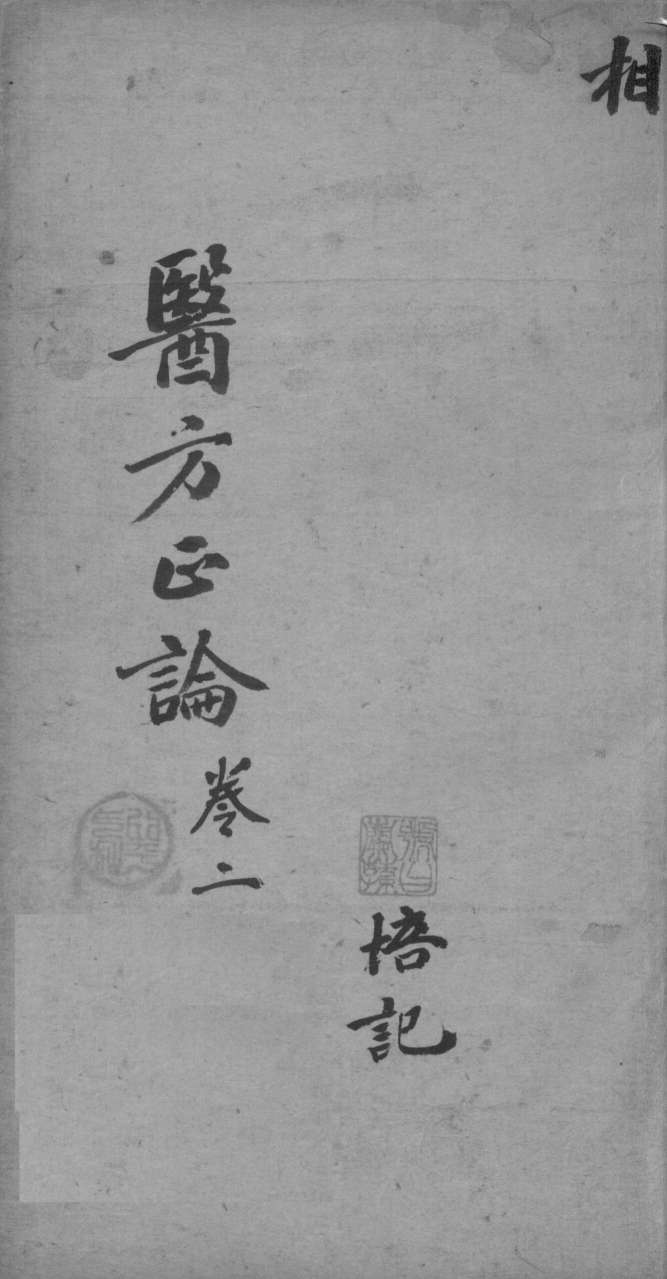 相
培記
醫方正論
卷二